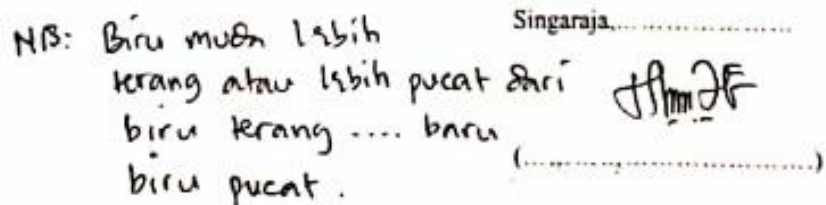 NB: Biru muda lebih
terang atau lebih pucat dari
biru terang .... baru
biru pucat.
Singaraja,....................
(................................)